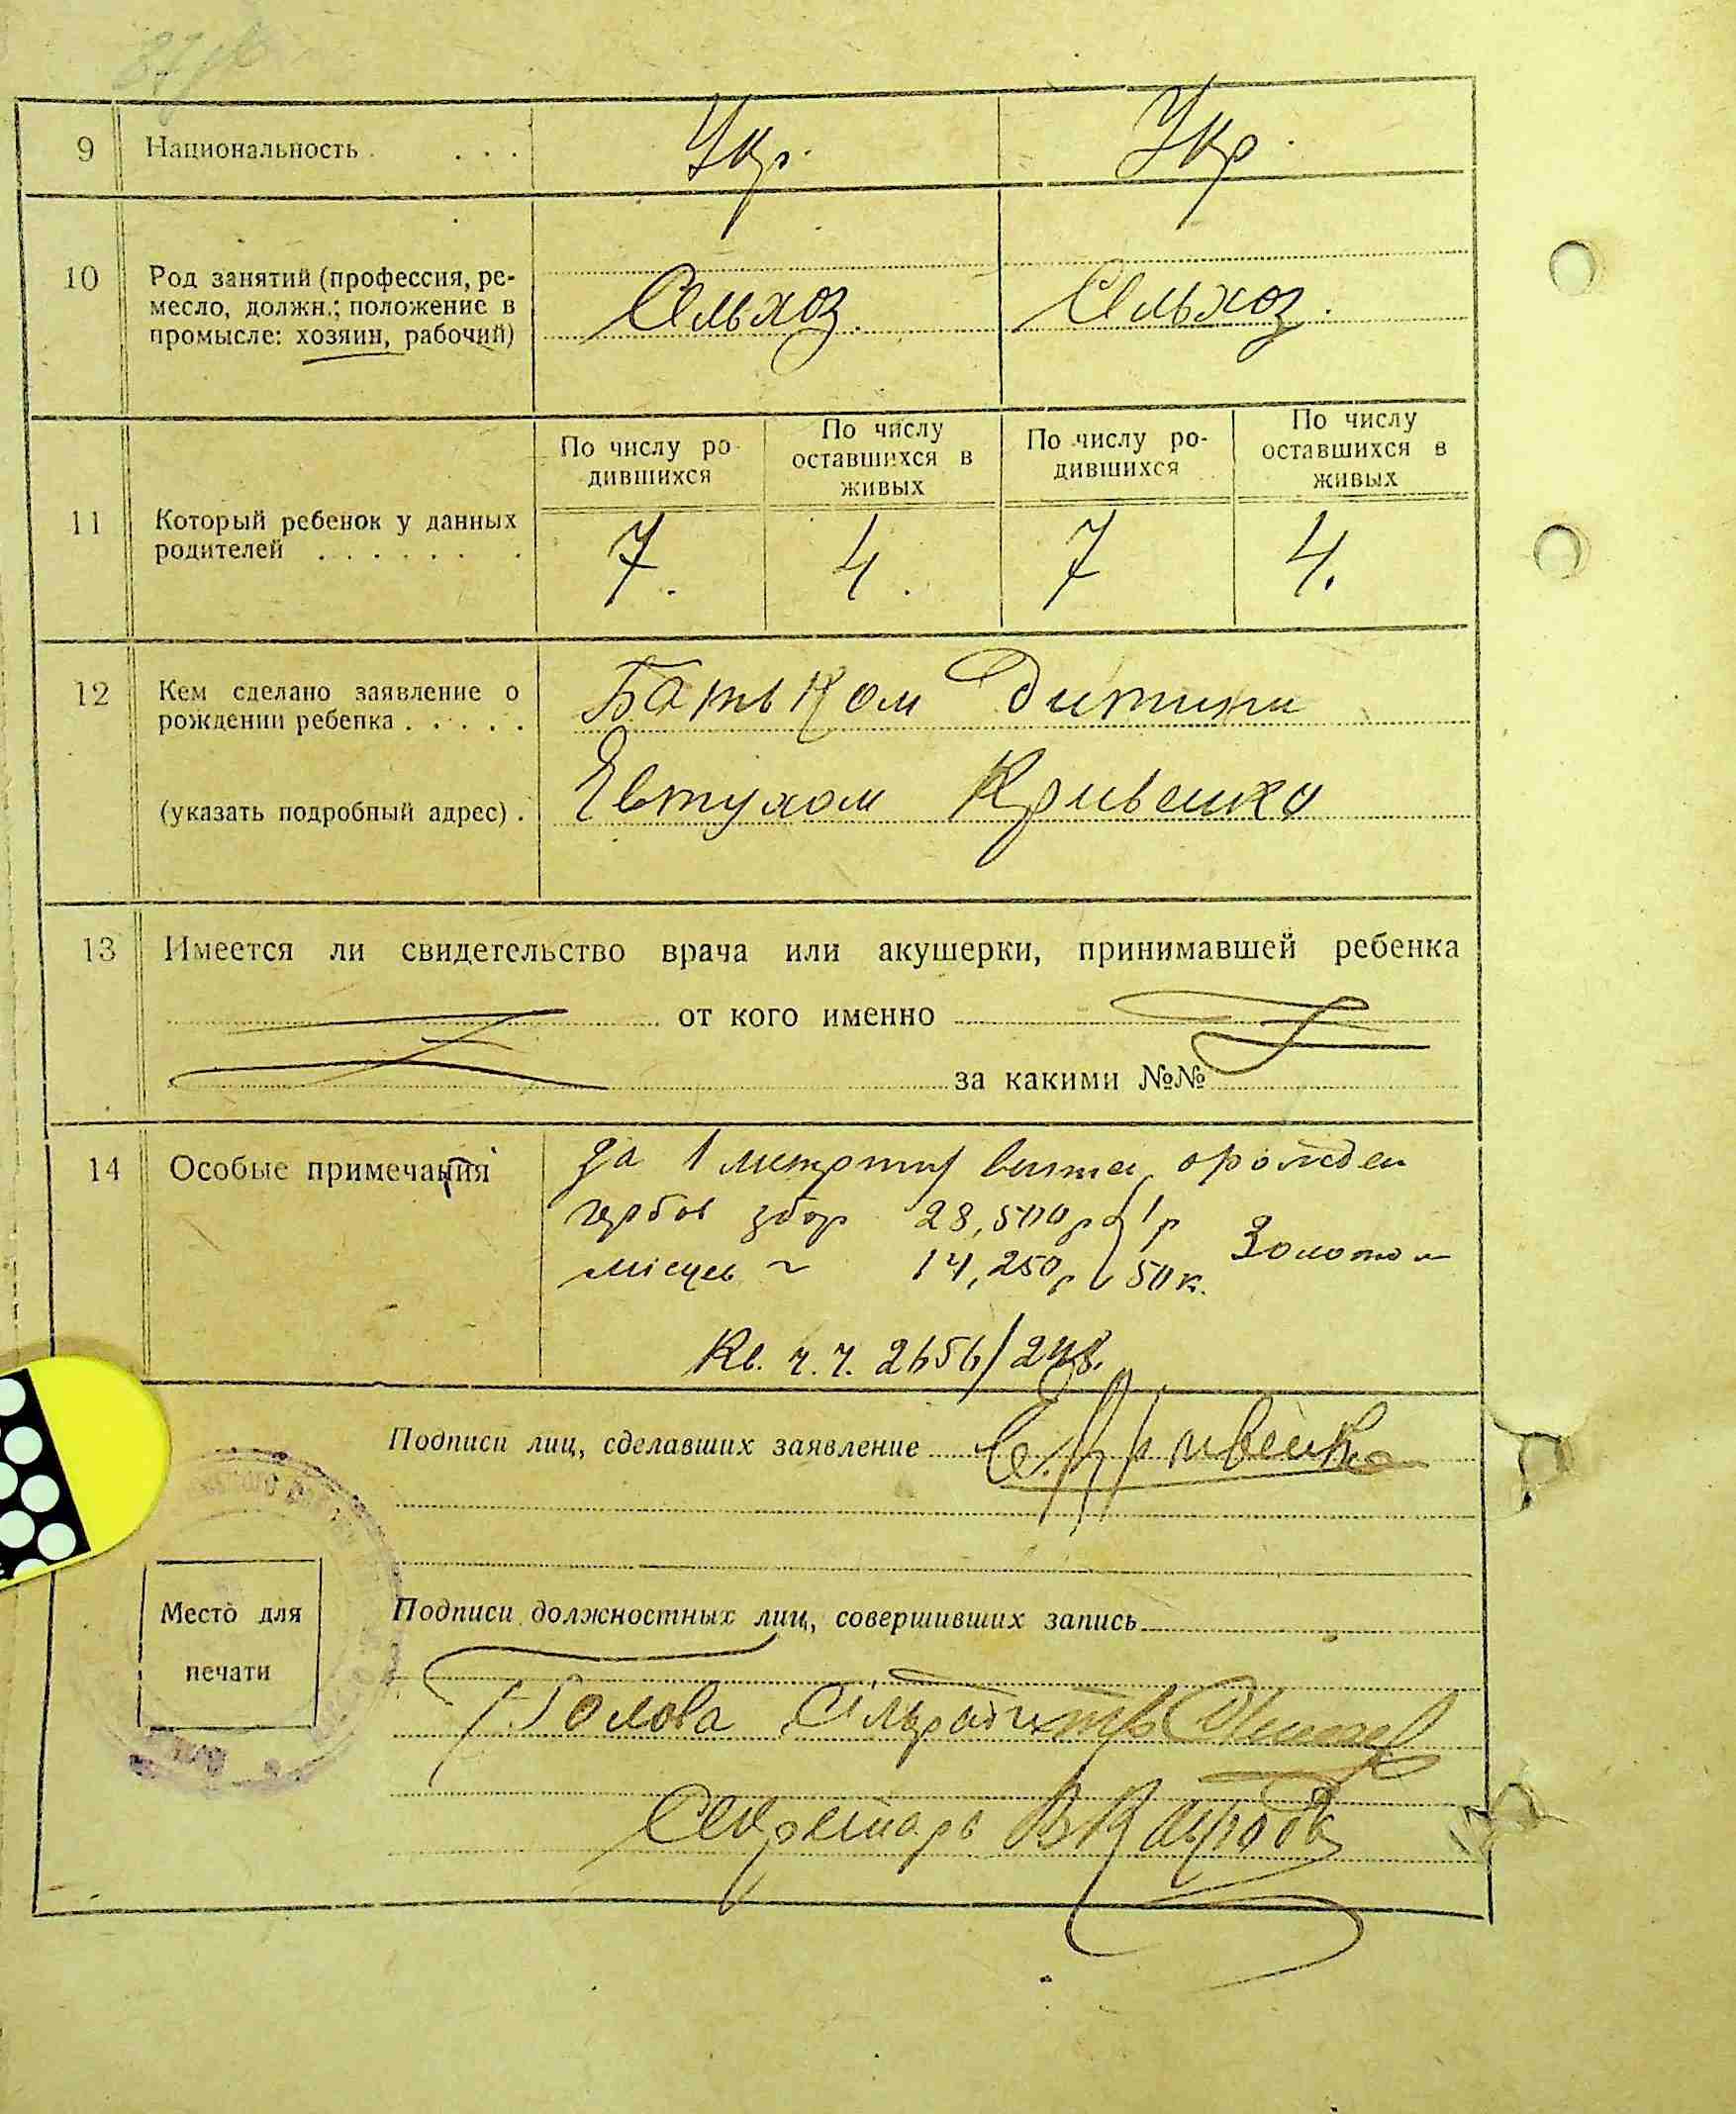 9 Национальность . . . . Укр. Укр.
10 Род занятий (профессия, ре-
месло, должн.; положение в
промысле: хозяин, рабочий)
Сельхоз. Сельхоз.
По числу ро-
дившихся
По числу
оставшихся в
живых
По числу ро-
дившихся
По числу
оставшихся в
живых
11 Который ребенок у данных
родителей . . . . . . .
7. 4. 7 4.
12 Кем сделано заявление о
рождении ребенка . . . . .
(указать подробный адрес) .
Батьком Дитини
Евтухом Кривенко
13 Имеется ли свидетельство врача или акушерки, принимавшей ребенка
от кого именно
за какими №№
14 Особые примечания
За 1 метрич
гербов збор 28,500 р 1 р
місцев " 14,250 р 50 к. Золотом
Кв. ч. ч. 2656/
Подписи лиц, сделавших заявление Е. Кривенко
Место для
печати
Подписи должностных лиц, совершивших запись
Голова Сільради
Секретарь